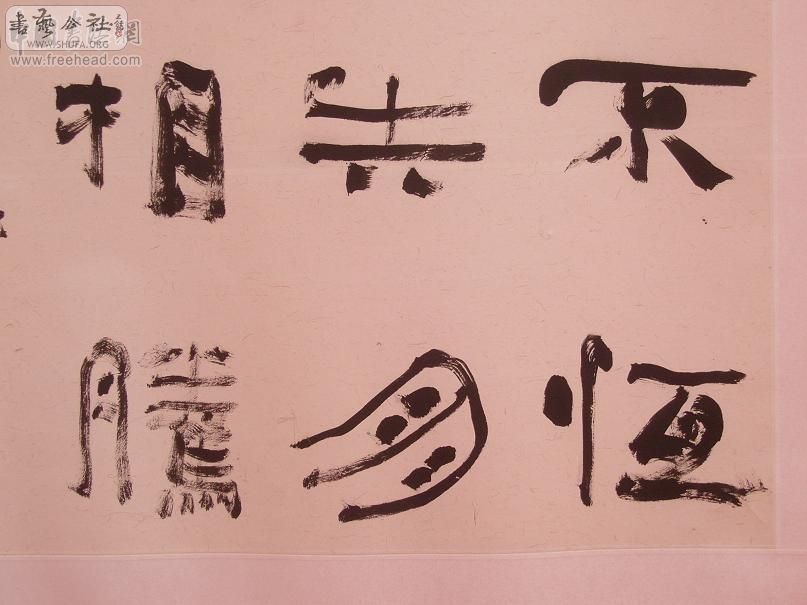 書藝公社
WWW.SHUFA.ORG
www.freehead.com
不恒
多
相騰